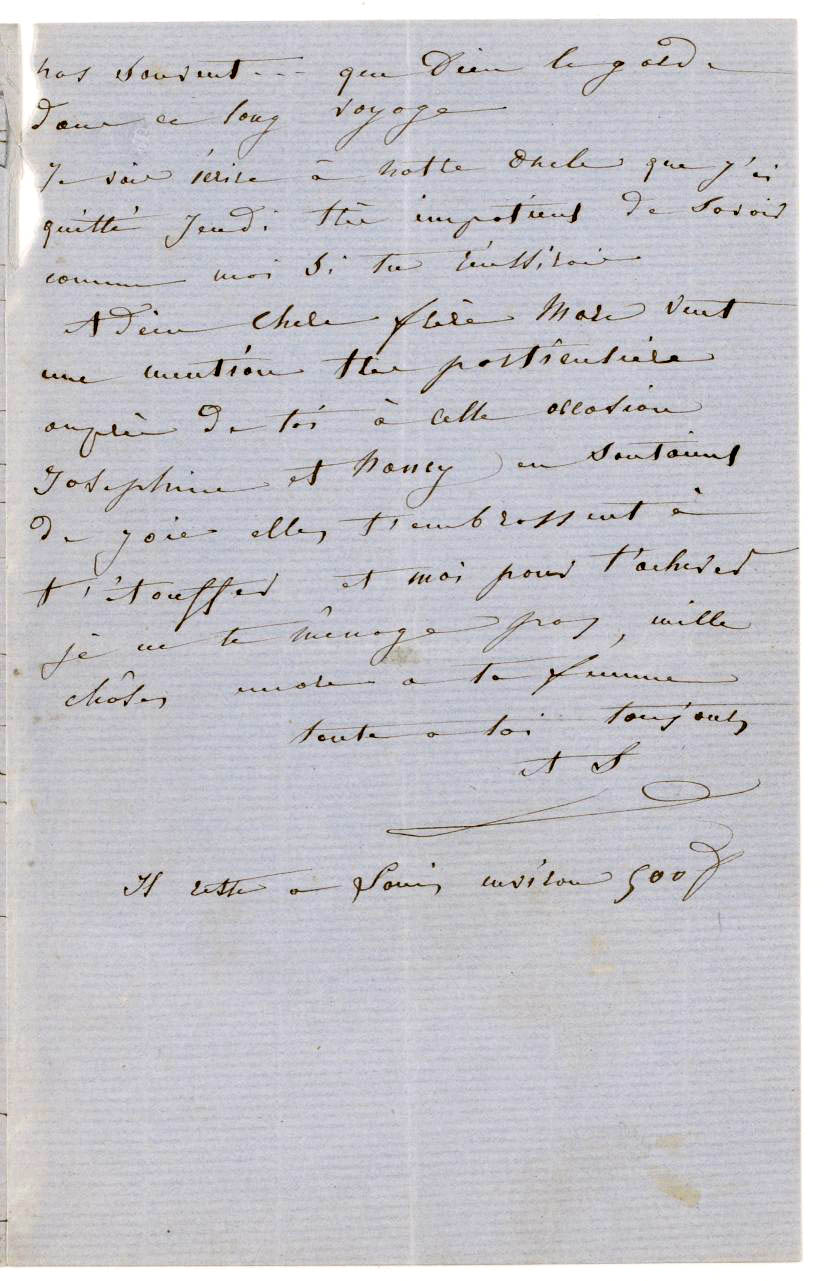 pas souvent... que Dieu le garde
dans ce long voyage
Je vais écrire à notre oncle que j'ai
quitté Jeudi très impatient de savoir
comme moi si tu réussirais
Adieu cher frère Marc veut
une mention très particulière
auprès de toi à cette occasion
Joséphine et Nancy en sautaient
de joie elles t'embrassent à
t'étouffer et moi pour t'achever
je ne te ménage pas, mille
chôses encore a ta femme
toute a toi toujours
A S
Il reste a Louis environ 500f